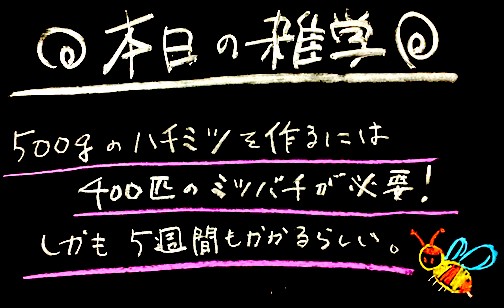 本日の雑学
500gのハチミツを作るには
400匹のミツバチが必要!
しかも5週間もかかるらしい。